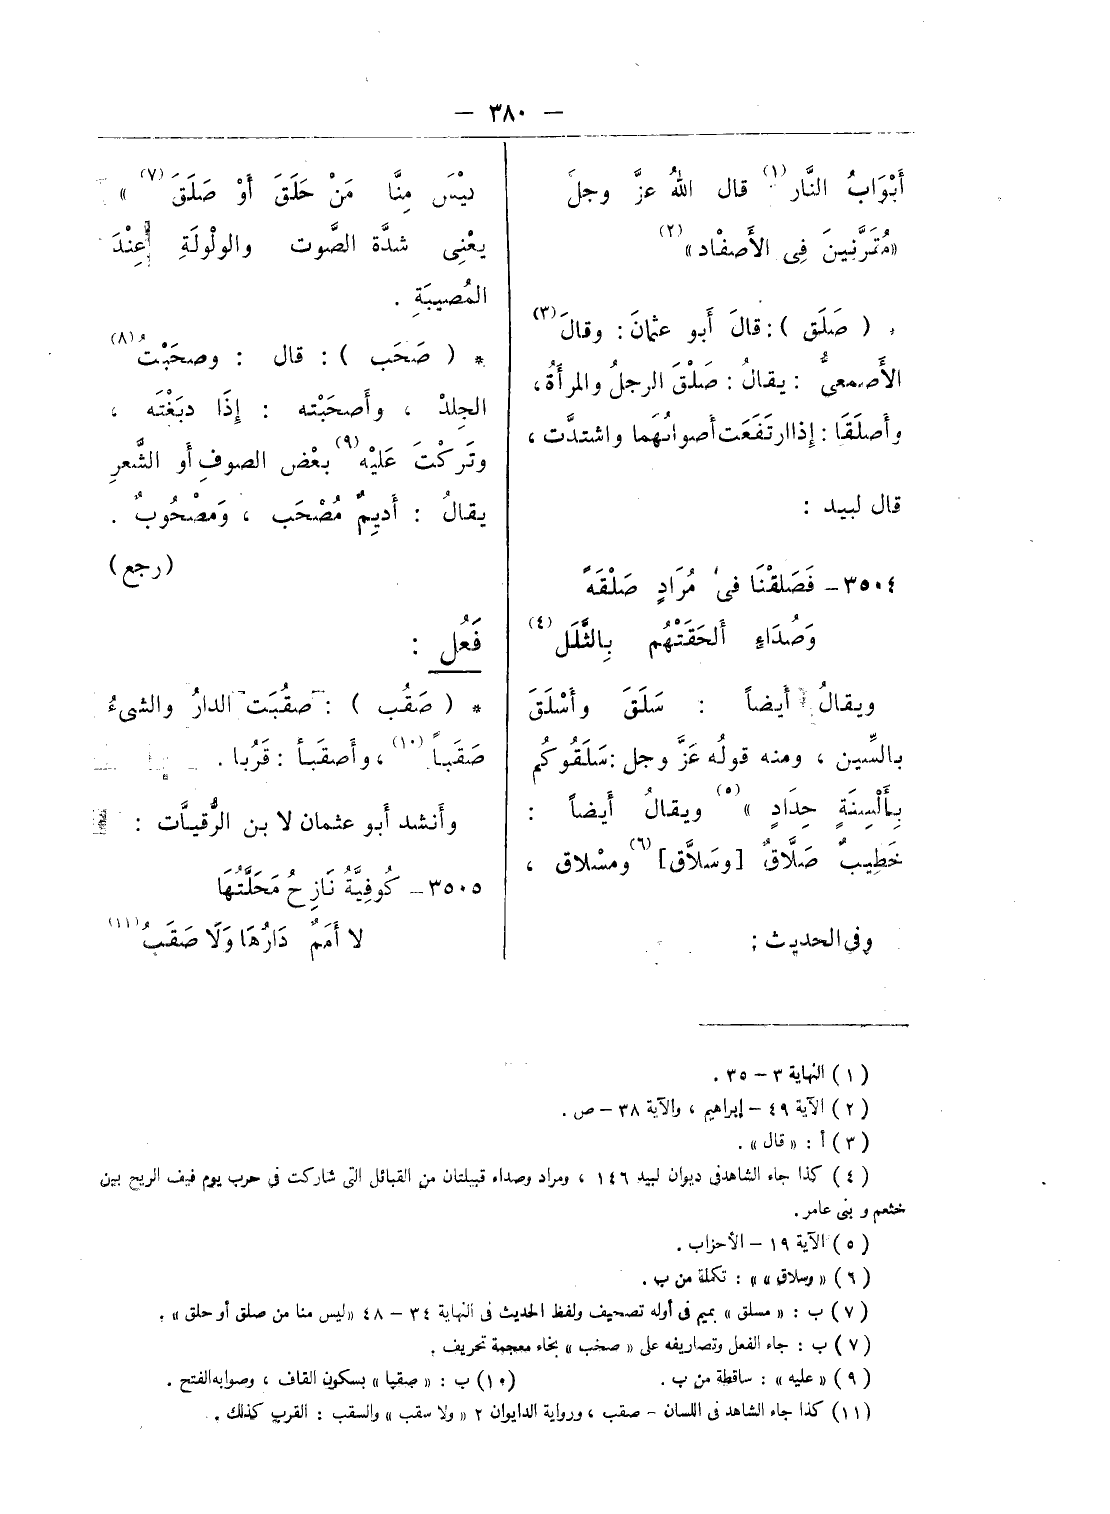 — ٣٨٠ —
أَبْوَابُ النَّار(١) قال اللهُ عزَّ وجلَ
«مُقَرَّنِينَ فِى الأَصفْاد»(٢)
( صَلَق ): قالَ أَبو عثمانَ : وقالَ(٣)
الأَصمعىُّ : يقالُ : صَلْقَ الرجلُ والمرأَةُ ،
وأصلَقَا : إذا ارتَفَعَت أصواتهُما واشتدَّت ،
قال لبيد :
٣٥٠٤ – فَصَلقْنَا فى مُرَادٍ صَلْقَةً
وَصُدَاءٍ ألحَقَتْهُم بِالثَّلَل(٤)
ويقالُ أيضاً : سَلَقَ وأَسْلَقَ
بالسِّين ، ومنه قولُه عَزَّ وجل : سَلَقُوكُم
بِأَلْسِنَةٍ حِدَادٍ »(٥) ويقالُ أيضاً :
خَطِيبٌ صَلَّاقٌ [وسَلاَّق](٦) ومسْلاق ،
وفى الحديث :
ليْسَ مِنَّا مَنْ حَلَقَ أوْ صَلَقَ(٧) »
يعْنِى شدَّة الصَّوت والولْولَةِ عِنْدَ
المُصيبَةِ .
* ( صَحَب ) : قال : وصحَبْتُ(٨)
الجِلدْ ، وأصحَبْته : إذَا دبَغْتَه ،
وتَركْتَ عَليْه(٩) بعْض الصوفِ أو الشَّعرِ
يقالُ : أديِمٌ مُصْحَب ، وَمَصْحُوبٌ .
(رجع)
فَعُل :
* ( صَقُب ) : صقُبَت الدارُ والشىءُ
صَقَباً(١٠) ، وأصقَبأ : قَرُبا .
وأنشد أبو عثمان لابن الرُّقيَّات :
٣٥٠٥ – كُوفِيَّةُ نَازِحُ مَحَلَّتُهَا
لا أمَمٌ دَارُهَا وَلَا صَقَبُ(١١)
(١) النهاية ٣ – ٣٥ .
(٢) الآية ٤٩ – إبراهيم ، والآية ٣٨ – ص .
(٣) أ : « قال » .
(٤) كذا جاء الشاهد فى ديوان لبيد ١٤٦ ، ومراد وصداء قبيلتان من القبائل التى شاركت فى حرب يوم فيف الريح بين
خثعم و بنى عامر .
(٥) الآية ١٩ – الأحزاب .
(٦) « وسلاق » » : تكملة من ب .
(٧) ب : « مسلق » بميم فى أوله تصحيف ولفظ الحديث فى النهاية ٣٤ – ٤٨ «ليس منا من صلق أو حلق » .
(٧) ب : جاء الفعل وتصاريفه على « صخب » بخاء معجمة تحريف .
(٩) « عليه » : ساقطة من ب . (١٠) ب : « صقبا » بسكون القاف ، وصوابه الفتح .
(١١) كذا جاء الشاهد فى اللسان – صقب ، ورواية الدايوان ٢ « ولا سقب » والسقب : القرب كذلك .